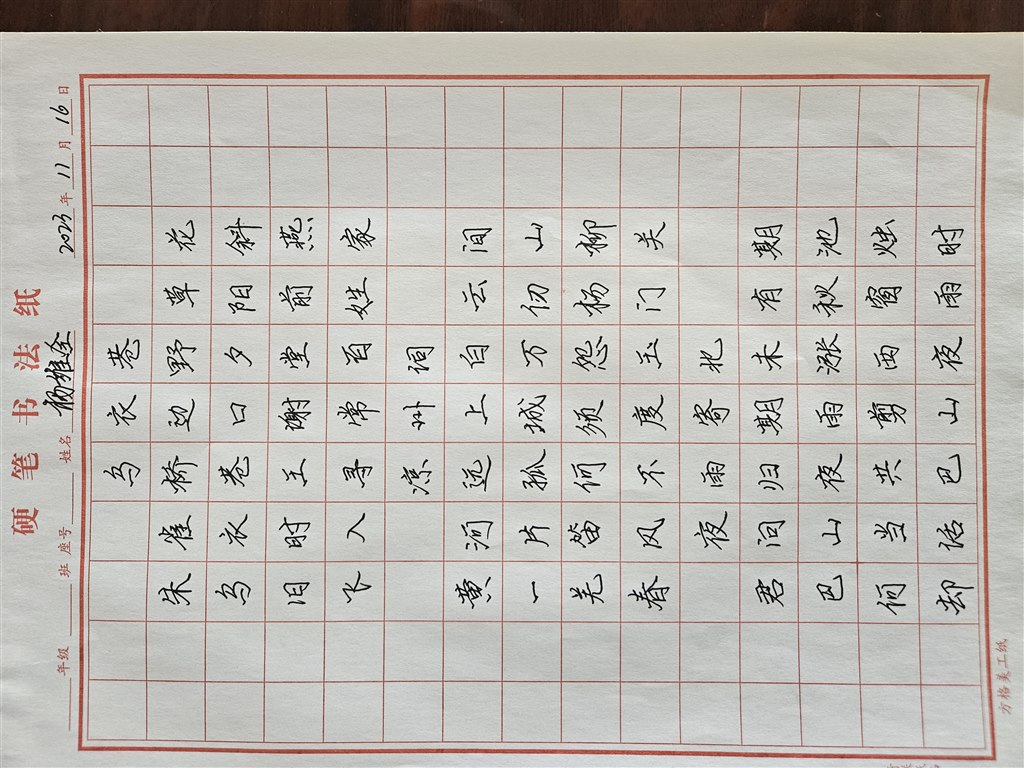 硬笔书法纸
年级 班 座号 姓名 杨 2023年11月16日
乌衣巷
朱雀桥边野草花
乌衣巷口夕阳斜
旧时王谢堂前燕
飞入寻常百姓家
凉州词
黄河远上白云间
一片孤城万仞山
羌笛何须怨杨柳
春风不度玉门关
夜雨寄北
君问归期未有期
巴山夜雨涨秋池
何当共剪西窗烛
却话巴山夜雨时
方格美工纸